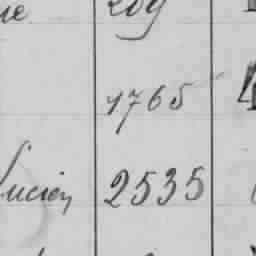 1765
Lucien 2535